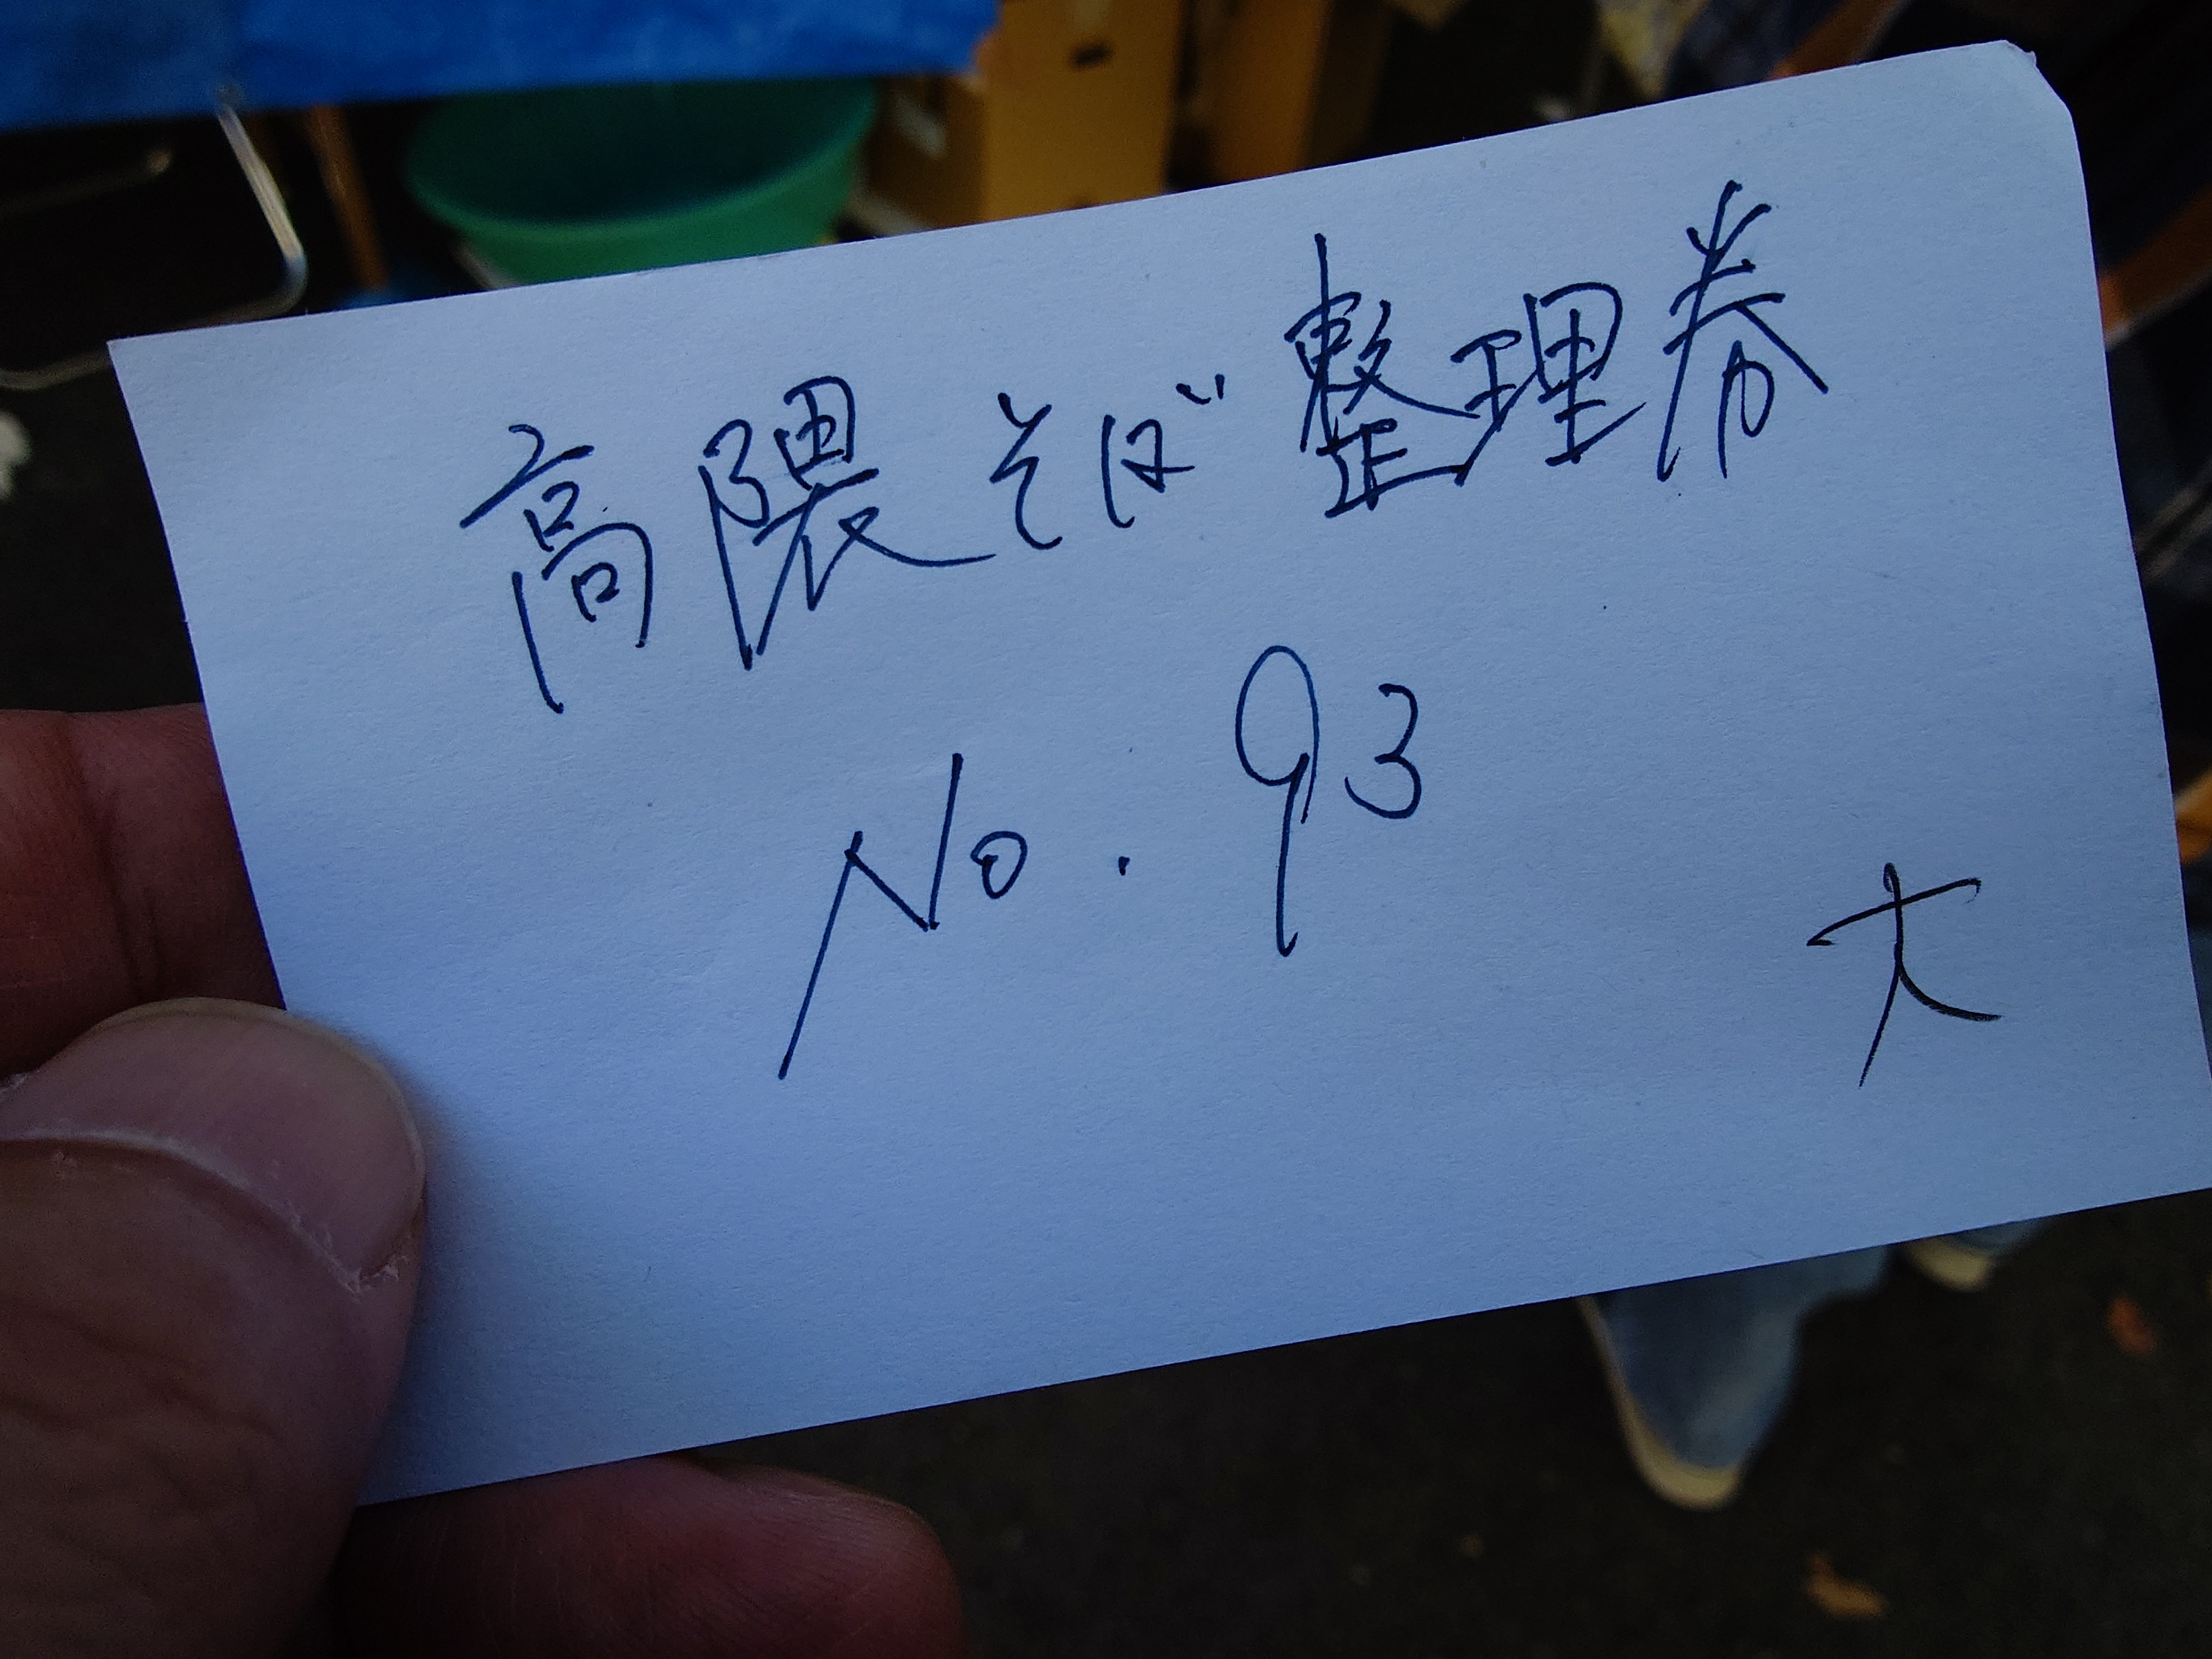 高隈そば整理券
No. 93
大